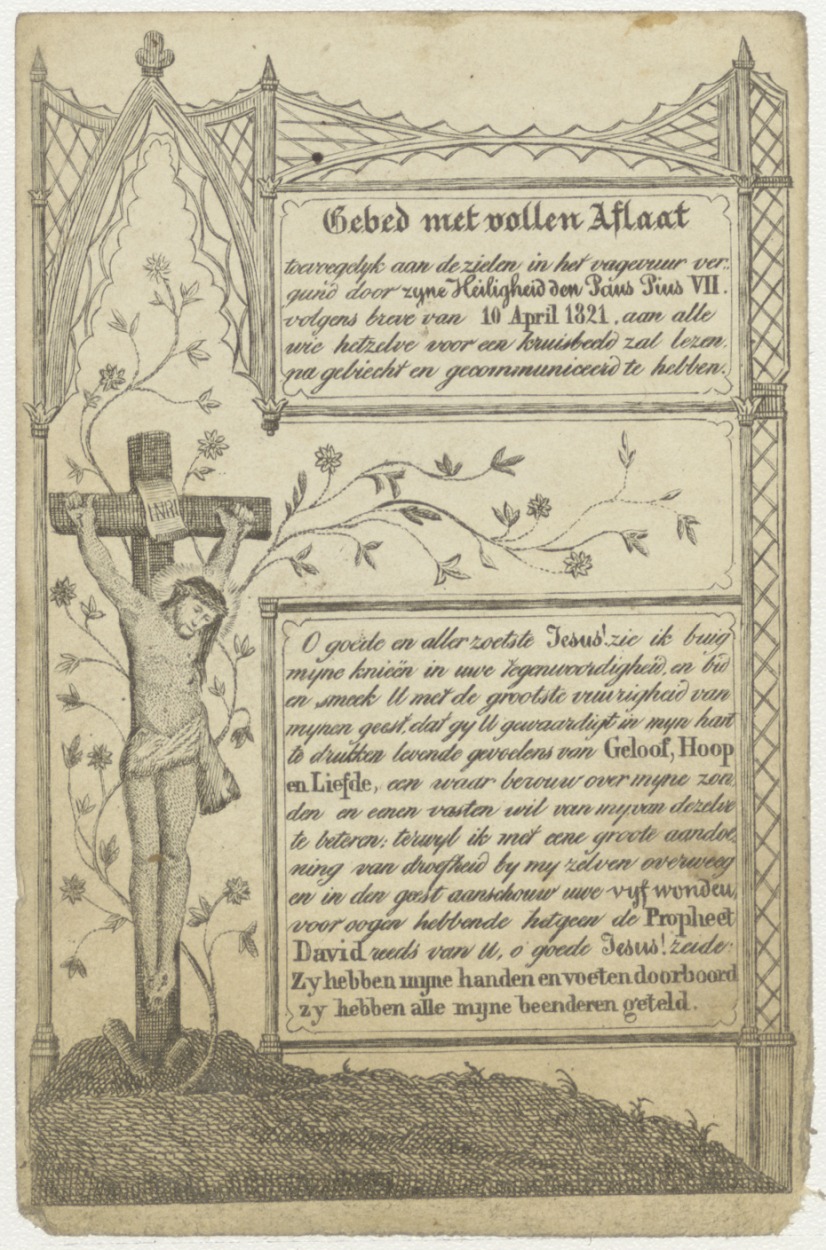 Gebed met vollen Aflaat
toevoegelyk aan de zielen in het vagevuur ver:
gund door zyne Heiligheid den Paus Pius VII.
volgens breve van 10 April 1821. aan alle
wie hetzelve voor een kruisbeeld zal lezen,
na gebiecht en gecommuniceerd te hebben.
INRI
O goede en aller zoetste Jesus! zie ik buig
myne knieën in uwe tegenwoordigheid, en bid
en smeek U met de grootste vuurigheid van
mynen geest, dat gy U gewaardigt in myn hart
te drukken levende gevoelens van Geloof, Hoop
en Liefde, een waar berouw over myne zon
den en eenen vasten wil van my van dezelve
te beteren: terwyl ik met eene groote aandoe,
ning van droefheid by my zelven overweeg
en in den geest aanschouw uwe vyf wonden,
voor oogen hebbende hetgeen de Propheet
David reeds van U, o goede Jesus! zeide:
Zy hebben myne handen en voeten doorboord
zy hebben alle myne beenderen geteld.